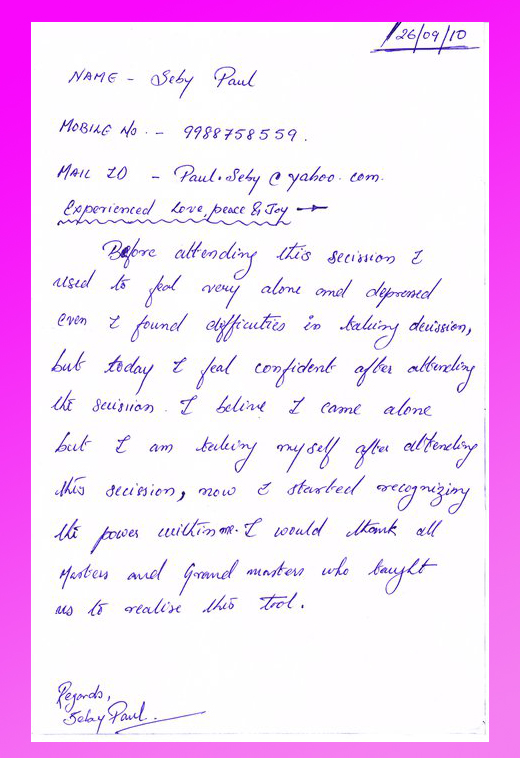 26/09/10
NAME - Seby Paul
MOBILE No. - 9988758559.
MAIL ID - Paul.Seby@yahoo.com.
Experienced Love, peace & Joy →
Before attending this secission I
used to feal very alone and depressed
even I found difficuties in taking decission,
but today I feal confident after attending
the secission. I belive I came alone
but I am taking myself after attending
this secission, now I started recognizing
the power within me. I would thank all
Masters and Grand masters who taught
us to realise this tool.
Regards,
Seby Paul.